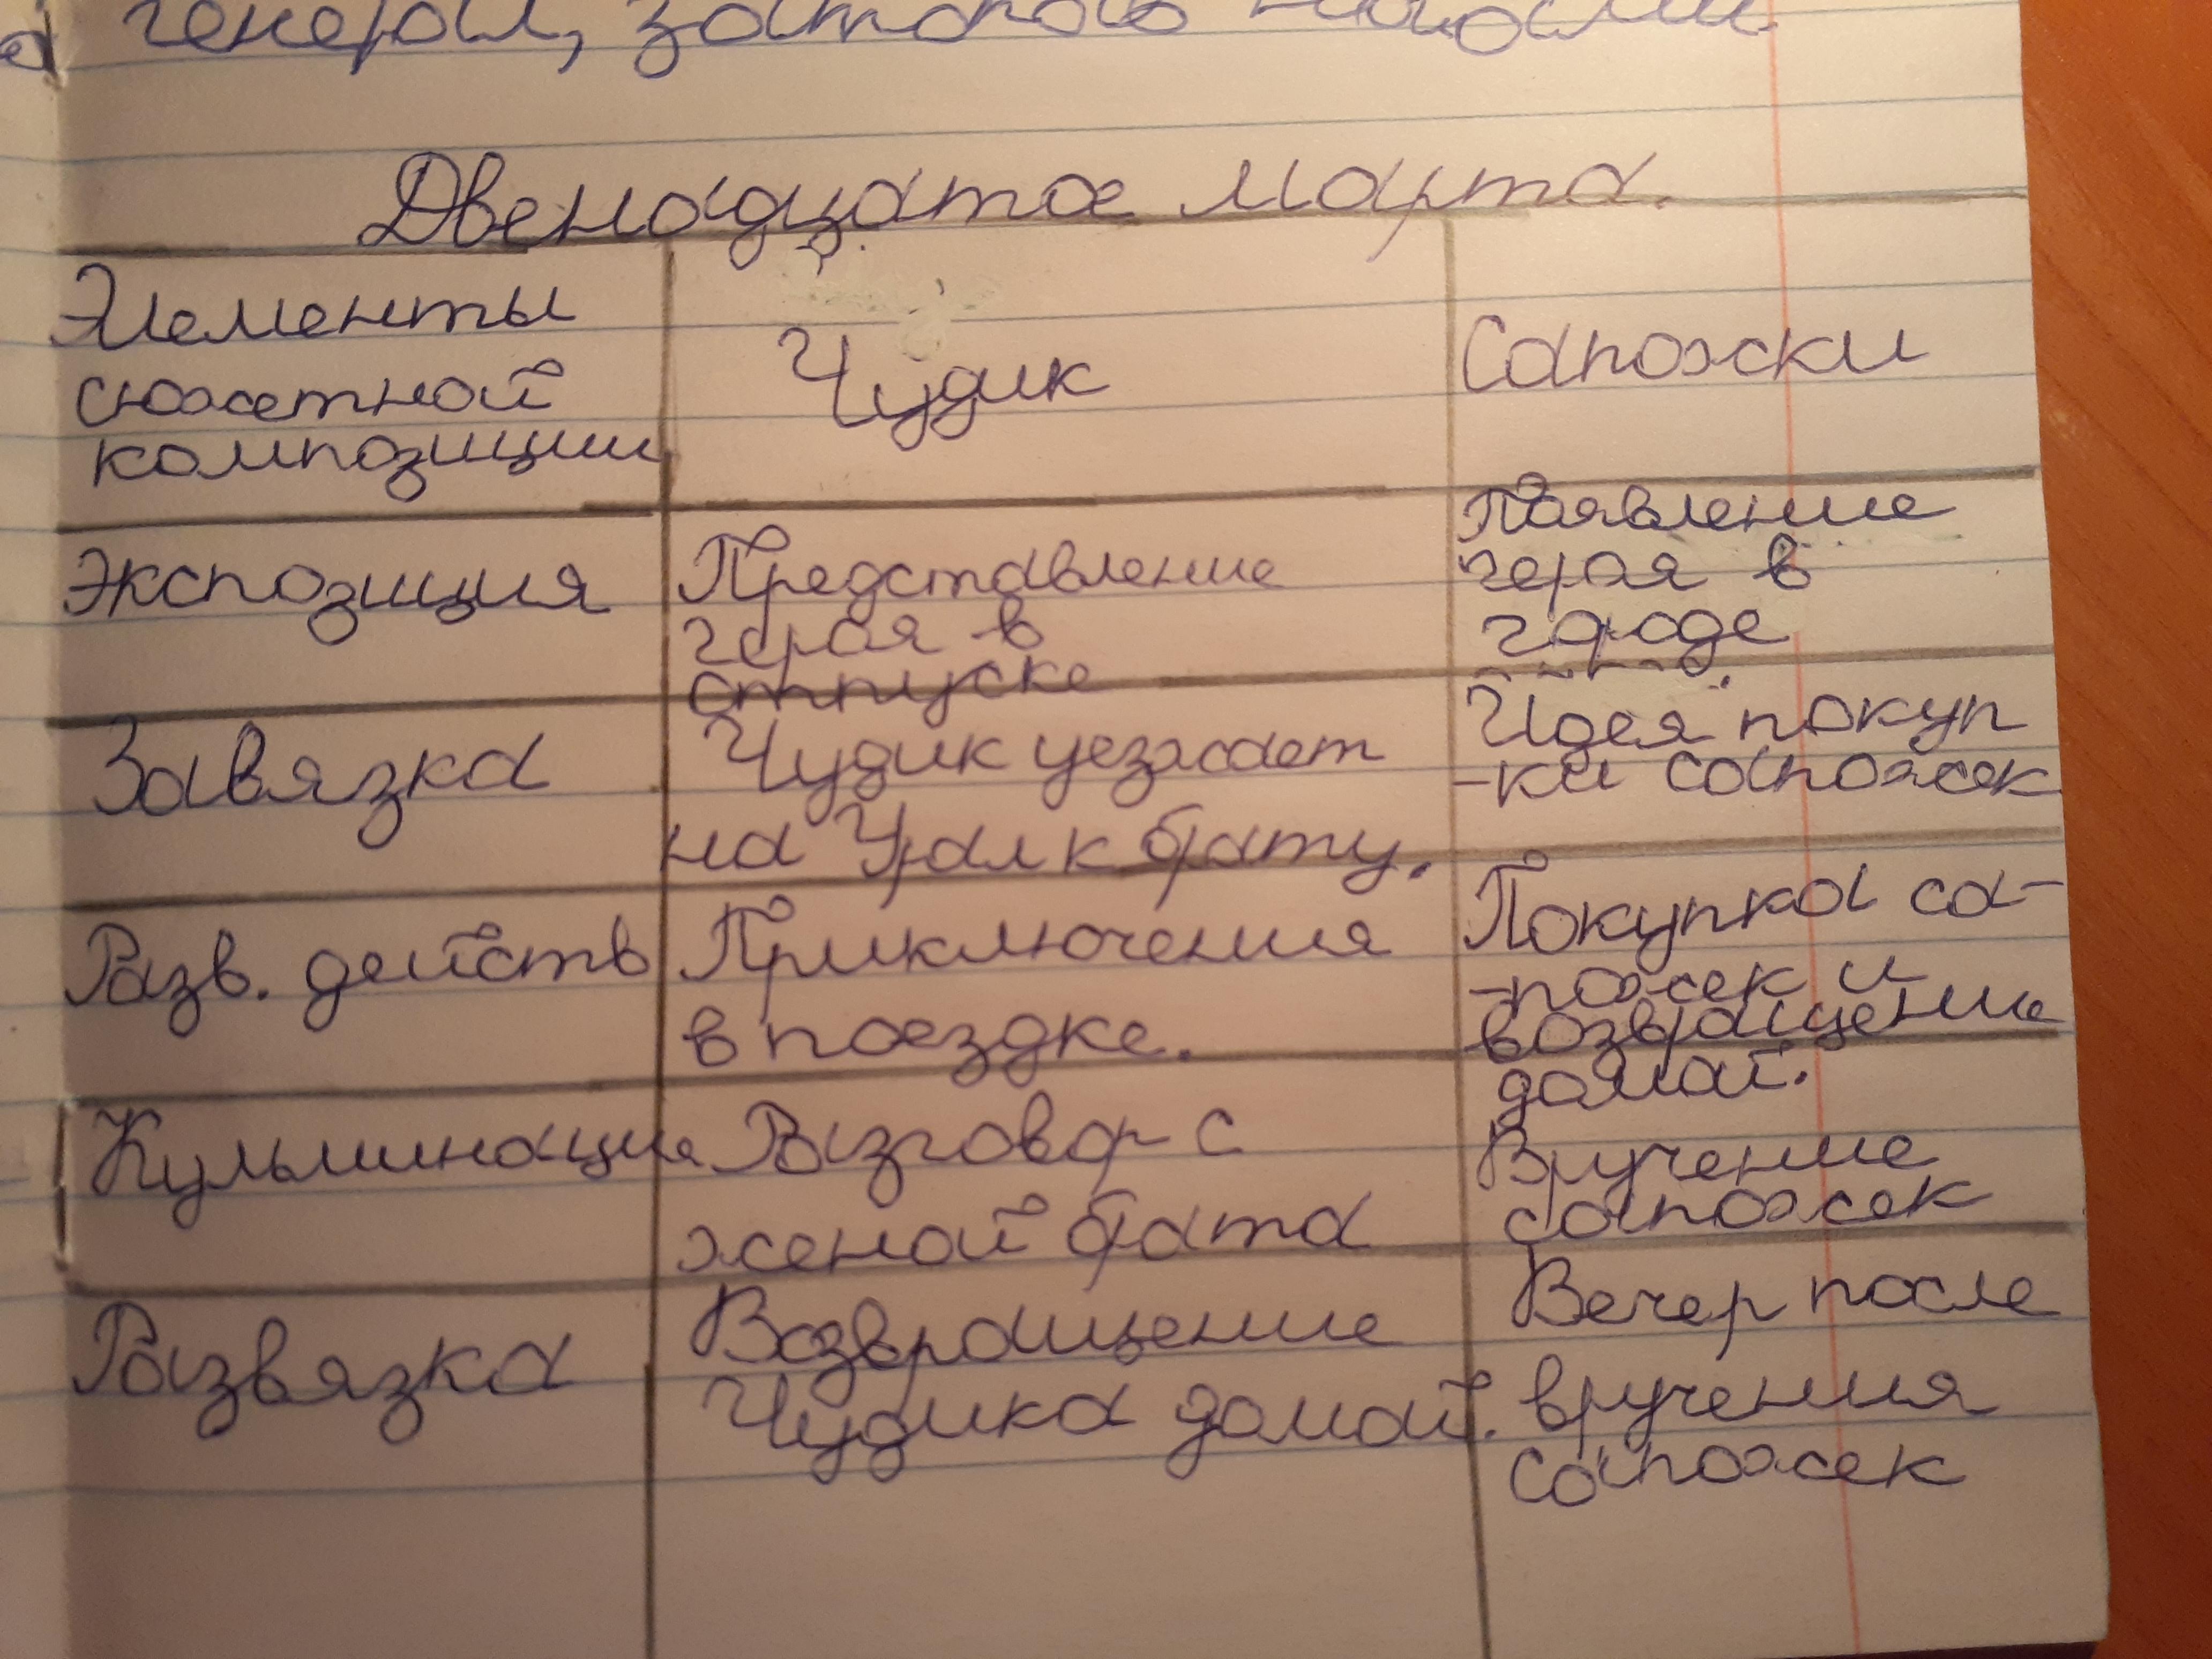 генерал, затопал ногами.
Двенадцатое марта.
Элементы
сюжетной
композиции
Чудик
Сапожки
Экспозиция
Представление
героя в
отпуске
Появление
героя в
городе
Завязка
Чудик уезжает
на Урал к брату.
Идея покуп
-ки сапожек
Разв. действ
Приключения
в поездке.
Покупка са-
-пожек и
возвращение
домой.
Кульминация
Разговор с
женой брата
Вручение
сапожек
Развязка
Возвращение
Чудика домой.
Вечер после
вручения
сапожек